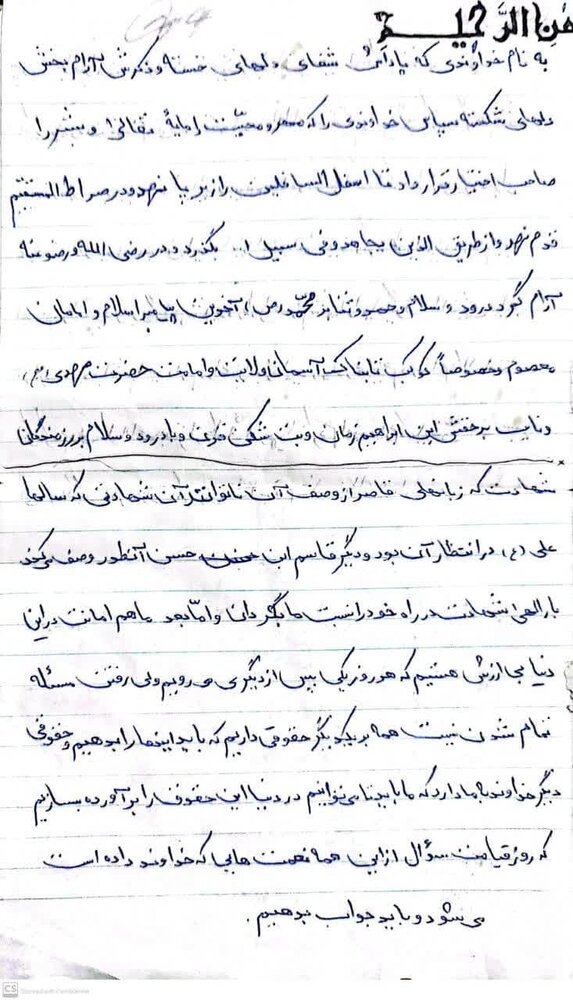 ـمن الرَّحیـــم
به نام خداوندی که یادش شفای دلهای خسته و ذکرش آرام بخش
دلهای شکسته سپاس خداوندی را که مهر و محبّت را مایهٔ تعالی و بشر را
صاحب اختیار قرار داد تا اسفل السافلین را زیر پا نهد و در صراط المستقیم
قدم نهد و از طریق الذین یجاهدو فی سبیل ا... بگذرد و در رضی الله و رضوعنه
آرام گیرد درود و سلام و حمد و ثنا بر محمّد (ص) آخرین پیامبر اسلام و امامان
معصوم و خصوصاً کوکب تابناک آسمان ولایت و امامت حضرت مهدی (عج)
و نایب بر حقش این ابراهیم زمان و بت شکن قرن و با درود و سلام بر رزمندگان
شهادت که زبانهای قاصر از وصف آن ناتوانند آن شهادتی که سالها
علی (ع) در انتظار آن بود و دیگر قاسم ابن حسن آنطور وصف می‌کند
بارالهی شهادت در راه خود را نسیب ما بگردان و امّا بعد ما هم امانت در این
دنیا بی ارزش هستیم که هر روز یکی پس از دیگری می‌رویم ولی رفتن مسئله
تمام شدن نیست همه بر یکدیگر حقوقی داریم که باید اینها را بدهیم و حقوقی
دیگر خداوند به ما دارد که ما باید تا می‌توانیم در دنیا این حقوق را برآورده بسازیم
که روز قیامت سؤال از این همه نعمت هایی که خداوند داده است
می‌شود و باید جواب بدهیم.
CS Scanned with CamScanner